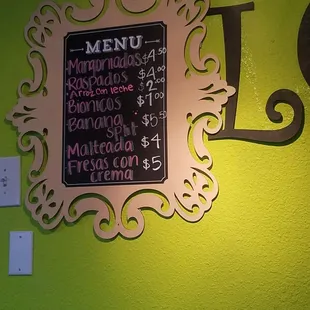 MENU
Mangonadas $4.50
Raspados $4.00
Arroz con leche $2
Bionicos $7.00
Banana split $5.5
Malteada $4
Fresas con crema $5
L